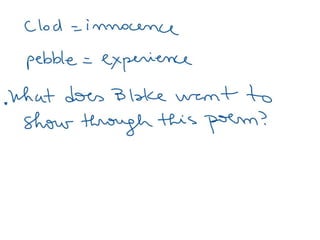 Clod = innocence
pebble = experience
. What does Blake want to
show through this poem?